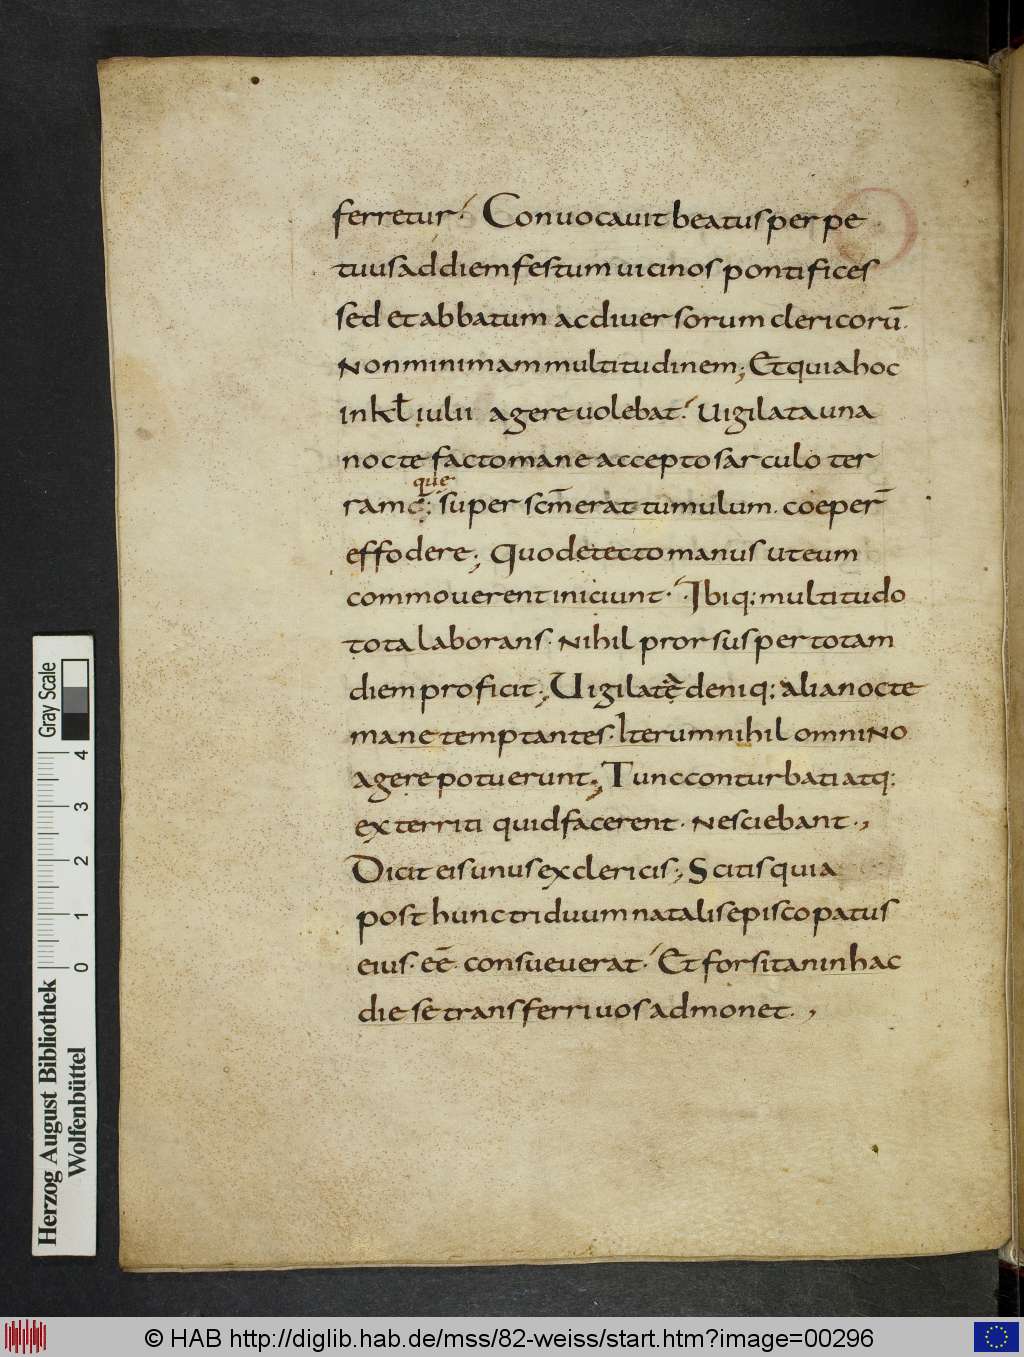 ferretur. Conuocauit beatus perpe
tuus ad diem festum uicinos pontifices
sed et abbatum ac diuersorum clericorū.
Non minimam multitudinem; Et quia hoc
in kł iulii agere uolebat. Uigilata una
nocte facto mane accepto sarculo ter
que
ram ę; super sc̄m erat tumulum. coeper̄
effodere; Quo detecto manus ut eum
commouerent iniciunt. Ibiq; multitudo
tota laborans. Nihil prorsus per totam
diem proficit; Uigilata deniq; alia nocte
mane temptantes. Iterum nihil omniNo
agere potuerunt; Tunc conturbati atq;
exterriti quid facerent. Nesciebant.,
Dicit eis unus ex clericis; Scitis quia
post hunc triduum natalis episcopatus
eius. eē. consueuerat. Et forsitan in hac
die se transferri uos admonet.,
Herzog August Bibliothek
Wolfenbüttel
0 1 2 3 4
Gray Scale
© HAB http://diglib.hab.de/mss/82-weiss/start.htm?image=00296